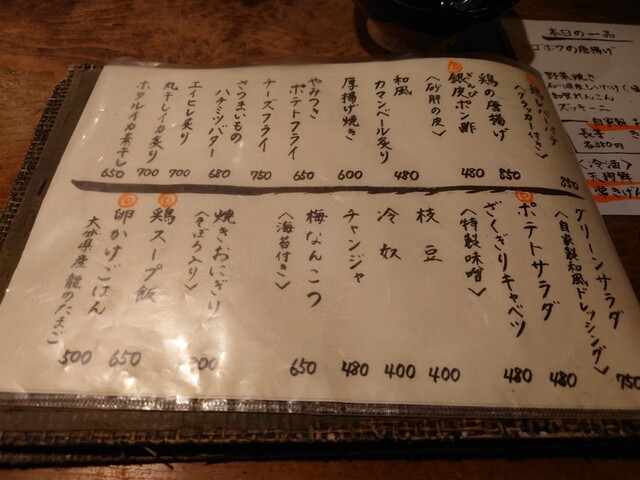 鶏レバーパテ
〈クラッカー付き〉
850
鶏の唐揚げ
850
銀皮ポン酢
ぎんぴ
〈砂肝の皮〉
480
和風
カマンベール炙り
480
厚揚げ焼き
600
やみつき
ポテトフライ
650
チーズフライ
750
さつまいもの
ハチミツバター
680
エイヒレ炙り
700
丸干しイカ炙り
700
ホタルイカ素干し
650
グリーンサラダ
〈自家製和風ドレッシング〉
750
ポテトサラダ
480
ざくぎりキャベツ
〈特製味噌〉
480
枝豆
400
冷奴
400
チャンジャ
480
梅なんこつ
〈海苔付き〉
650
焼きおにぎり
〈そぼろ入り〉
鶏スープ飯
650
卵かけごはん
大分県産 龍のたまご
500
本日の一品
ゴボウの唐揚げ
野菜焼き
れんこん
ズッキーニ
自家製
長芋
各350円
〈冷酒〉